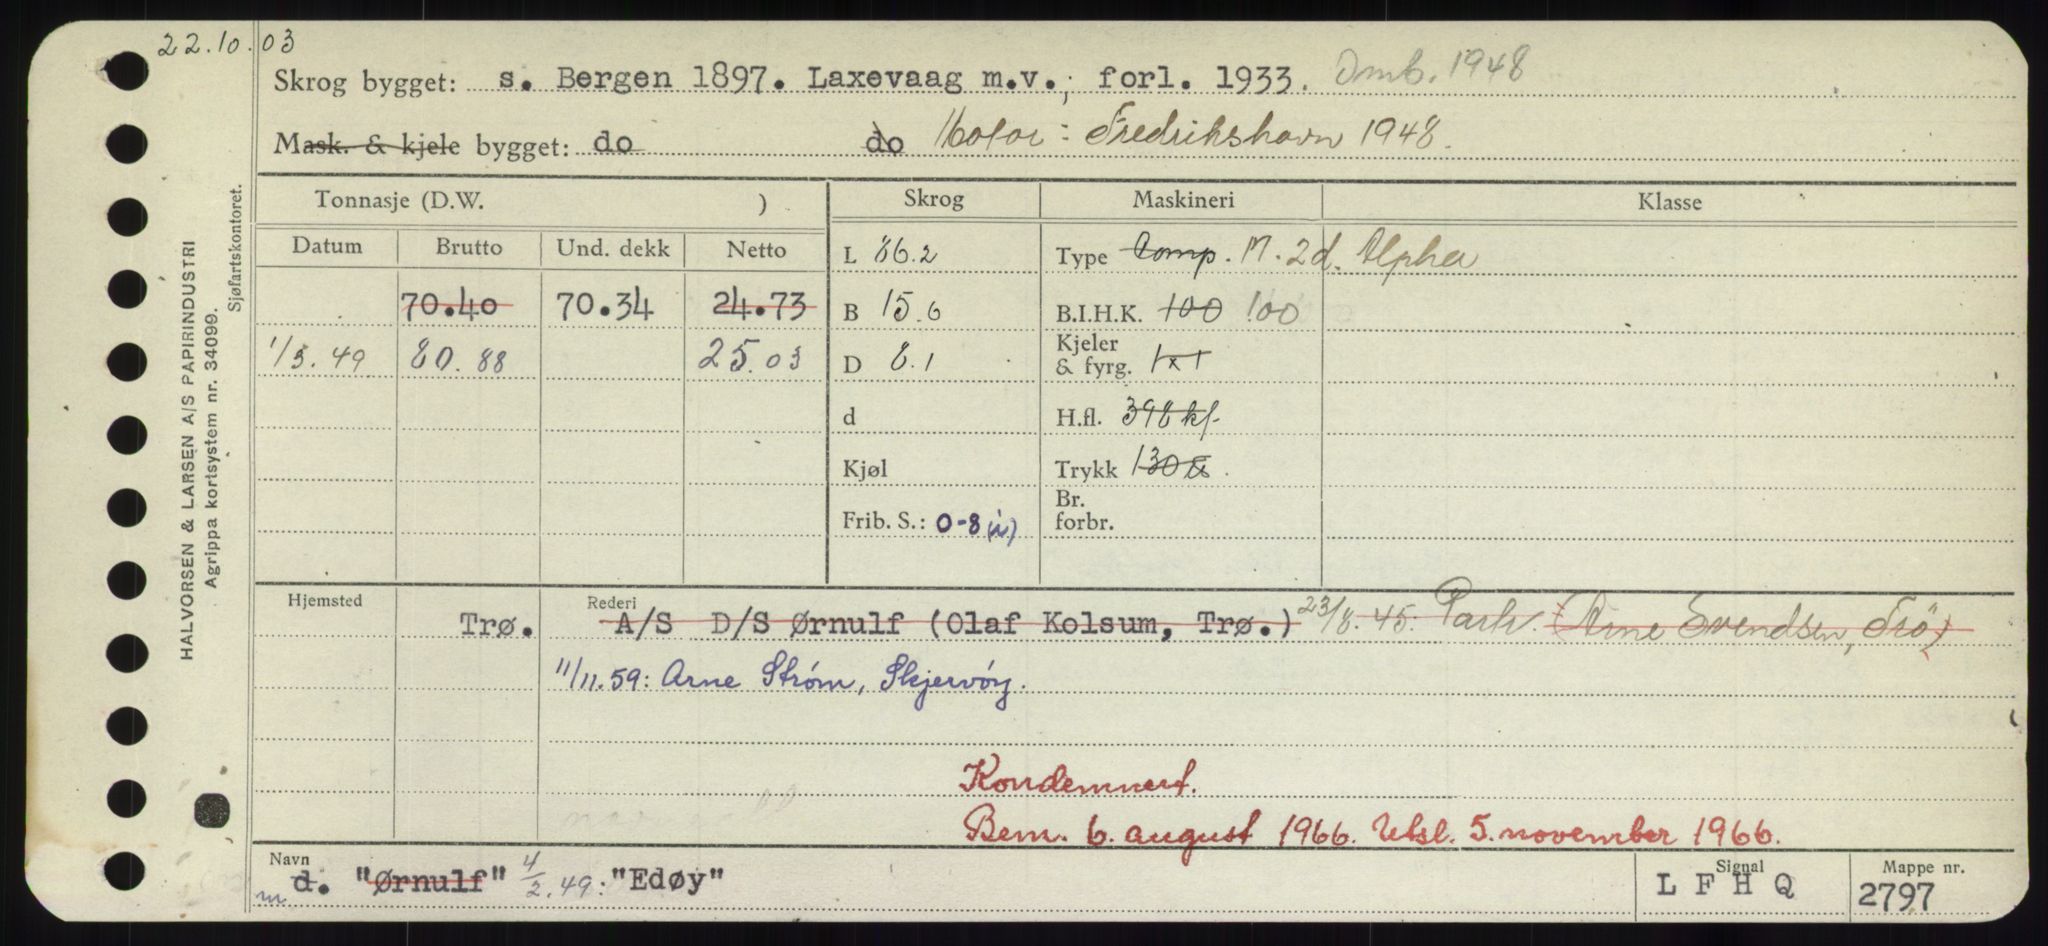 22.10.03
Skrog bygget: s. Bergen 1897. Laxevaag m.v., forl. 1933. Omb. 1948
Mask. & kjele bygget: do do Motor: Fredrikshavn 1948.
Tonnasje (D.W. ) Skrog Maskineri Klasse
Datum Brutto Und. dekk Netto L 86.2 Type Comp. M. 2d. Alpha
70.40 70.34 24.73 B 15.6 B.I.H.K. 100 100
1/3.49 80.88 25.03 D 8.1 Kjeler & fyrg. 1x1
d H.fl. 398 kf.
Kjøl Trykk 130
Frib. S.: 0-8 Br. forbr.
Hjemsted Rederi
Trø. A/S D/S Ørnulf (Olaf Kolsum, Trø.) 23/8.45. Partr. (Arne Svendsen, Trö.)
11/11.59: Arne Strøm, Skjervöy.
Kondemnert.
Bem. 6. august 1966. Utsl. 5. november 1966.
Navn Signal Mappe nr.
m d. "Ørnulf" 4/2.49: "Edøy" L F H Q 2797
HALVORSEN & LARSEN A/S PAPIRINDUSTRI
Agrippa kortsystem nr. 34099.
Sjøfartskontoret.